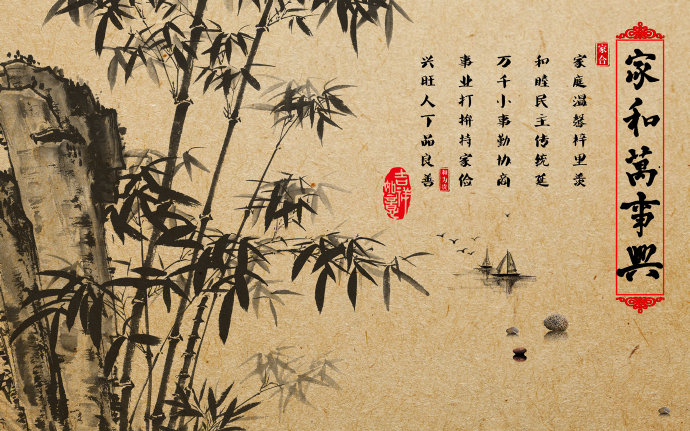 家和萬事興
家合
家庭温馨梓里羡
和睦民主传统延
万千小事勤协商
事业打拚持家俭
兴旺人丁品良善
和为贵
吉祥如意